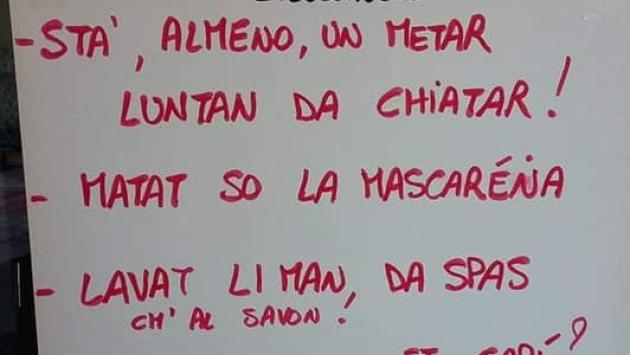 - STA', ALMENO, UN METAR
LUNTAN DA CHIATAR!
- MATAT SO LA MASCARÉṄA
- LAVAT LI MAN, DA SPAS
CH' AL SAVON!